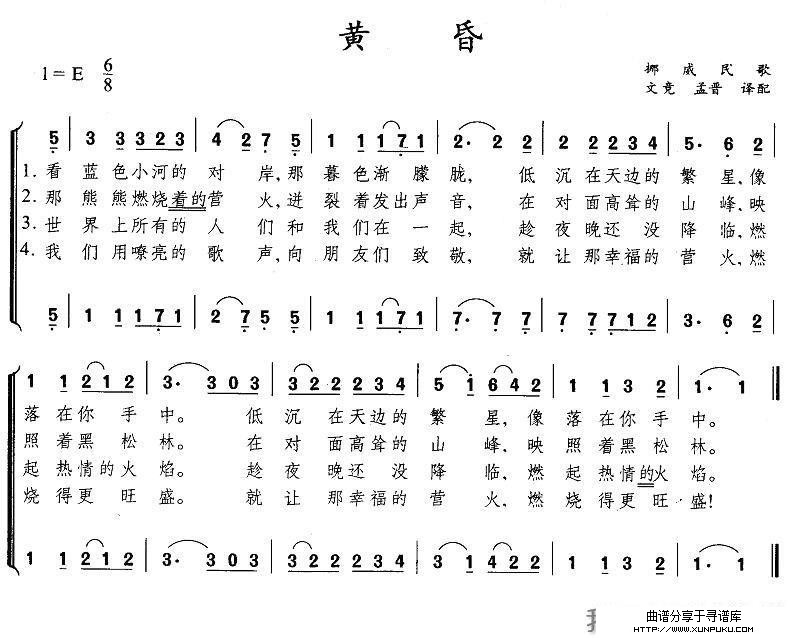 黄 昏
1=E 6/8
挪威民歌
文竞 孟晋 译配
5 | 3 3 3 3 2 3 | 4 2 7 5 | 1 1 1 1 7 1 | 2· 2 2 | 2 2 2 2 3 4 | 5· 6 2 |
1. 看 蓝色小河的 对 岸,那 暮色渐朦 胧, 低 沉在天边的 繁 星,像
2. 那 熊熊燃烧着的营 火,迸 裂着发出声 音, 在 对面高耸的 山 峰,映
3. 世 界上所有的 人 们和 我们在一 起, 趁 夜晚还没 降 临,燃
4. 我 们用嘹亮的 歌 声,向 朋友们致 敬, 就 让那幸福的 营 火,燃
5 | 1 1 1 1 7 1 | 2 7 5 5 | 1 1 1 1 7 1 | 7· 7 7 | 7 7 7 7 1 2 | 3· 6 2 |
1 1 2 1 2 | 3· 3 0 3 | 3 2 2 2 3 4 | 5 1 6 4 2 | 1 1 3 2 | 1· 1 ‖
落 在你 手 中。 低 沉 在天边的 繁 星, 像 落在你 手 中。
照 着黑 松 林。 在 对 面高耸的 山 峰, 映 照着黑 松 林。
起 热情的火 焰。 趁 夜 晚还没 降 临, 燃 起热情的火 焰。
烧 得更 旺 盛。 就 让 那幸福的 营 火, 燃 烧得更 旺 盛!
1 1 2 1 2 | 3· 3 0 3 | 3 2 2 2 3 4 | 3 1 4 2 2 | 1 1 3 2 | 1· 1 ‖
曲谱分享于寻谱库
HTTP://WWW.XUNPUKU.COM